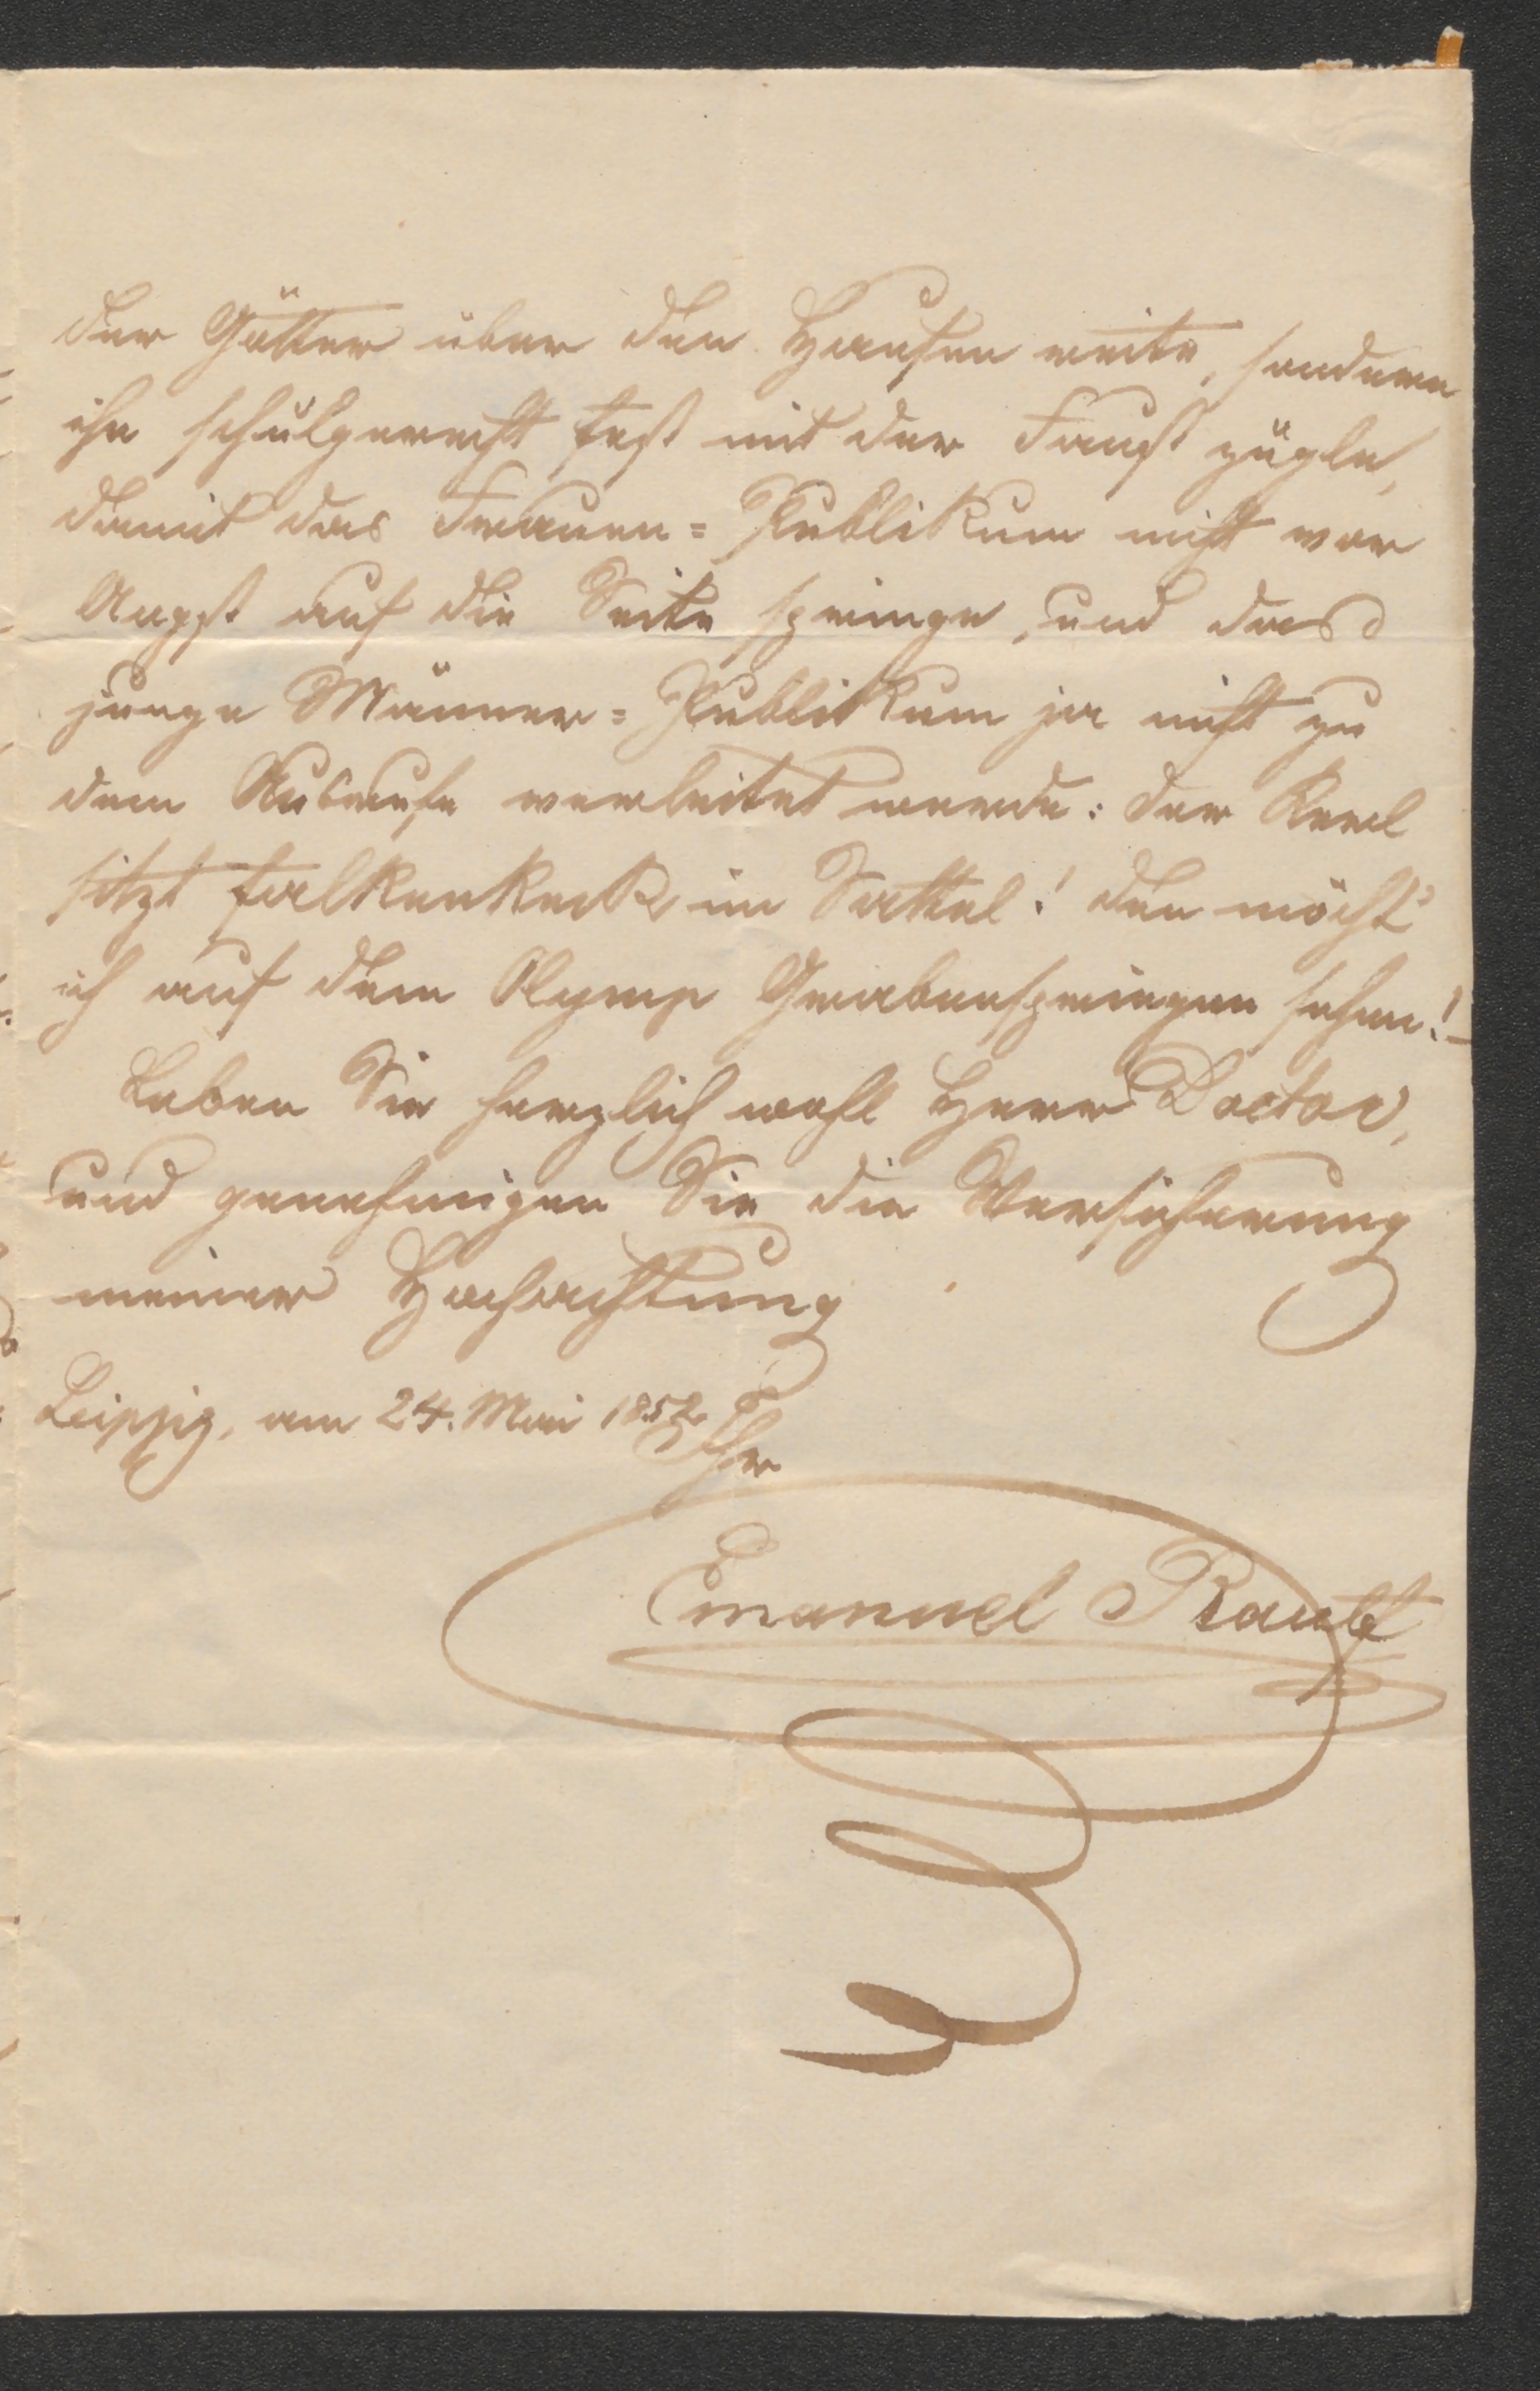 der Götter über den Haufen reite, sondern
ihn schulgerecht fest mit der Faust zügle,
damit das Frauen=Publikum nicht vor
Angst auf die Seite springe, und das
junge Männer=Publikum ja nicht zu
dem Ausrufe verleitet werde: der Kerl
sitzt falkenkeck im Sattel! den möcht'
ich auf dem Olymp Grabenspringen sehen!–
Leben Sie herzlich wohl Herr Doctor,
und genehmigen Sie die Versicherung
meiner Hochachtung
Leipzig, am 24. Mai 1852.
Ihr
Emanuel Raulf